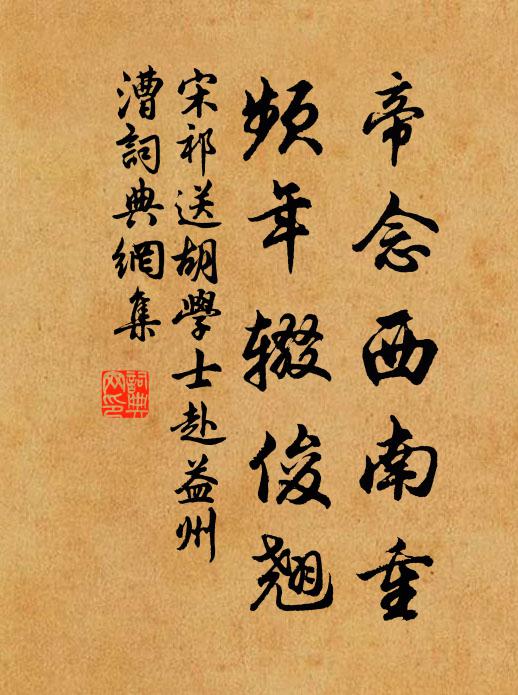 帝念西南重
频年辍俊翘
宋祁送胡學士赴益州
漕詞典網集
詞典网印